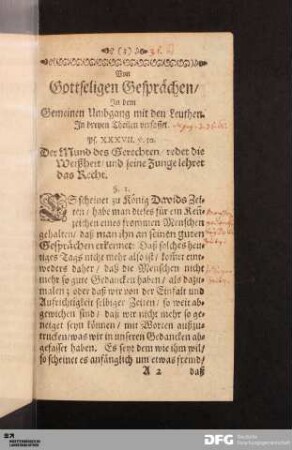 (3)
Von
Gottseligen Gesprächen/
In dem
Gemeinen Umbgang mit den Leuthen.
In dreyen Theilen verfasset.
Ps. XXXVII. v. 30.
Der Mund des Gerechten redet die
Weißheit/ und seine Zunge lehret
das Recht.
§. 1.
ES scheinet zu König Davids Zei-
ten/ habe man dieses für ein Kenn-
zeichen eines frommen Menschen
gehalten/ daß man ihn an seinen guten
Gesprächen erkennet: Daß solches heu-
tiges Tags nicht mehr also ist/ komt eint-
weders daher/ daß die Menschen nicht
mehr so gute Gedancken haben/ als dazu-
malen; oder daß wir von der Einfalt und
Aufrichtigkeit selbiger Zeiten/ so weit ab-
gewichen sind/ daß wir nicht mehr so ge-
neiget seyn können/ mit Worten außzu-
trucken/ was wir in unseren Gedancken ab-
gefasset haben. Es seye dem wie ihm wil/
so scheinet es anfänglich um etwas fremd/
A 2 daß
DFG Deutsche
Forschungsgemeinschaft